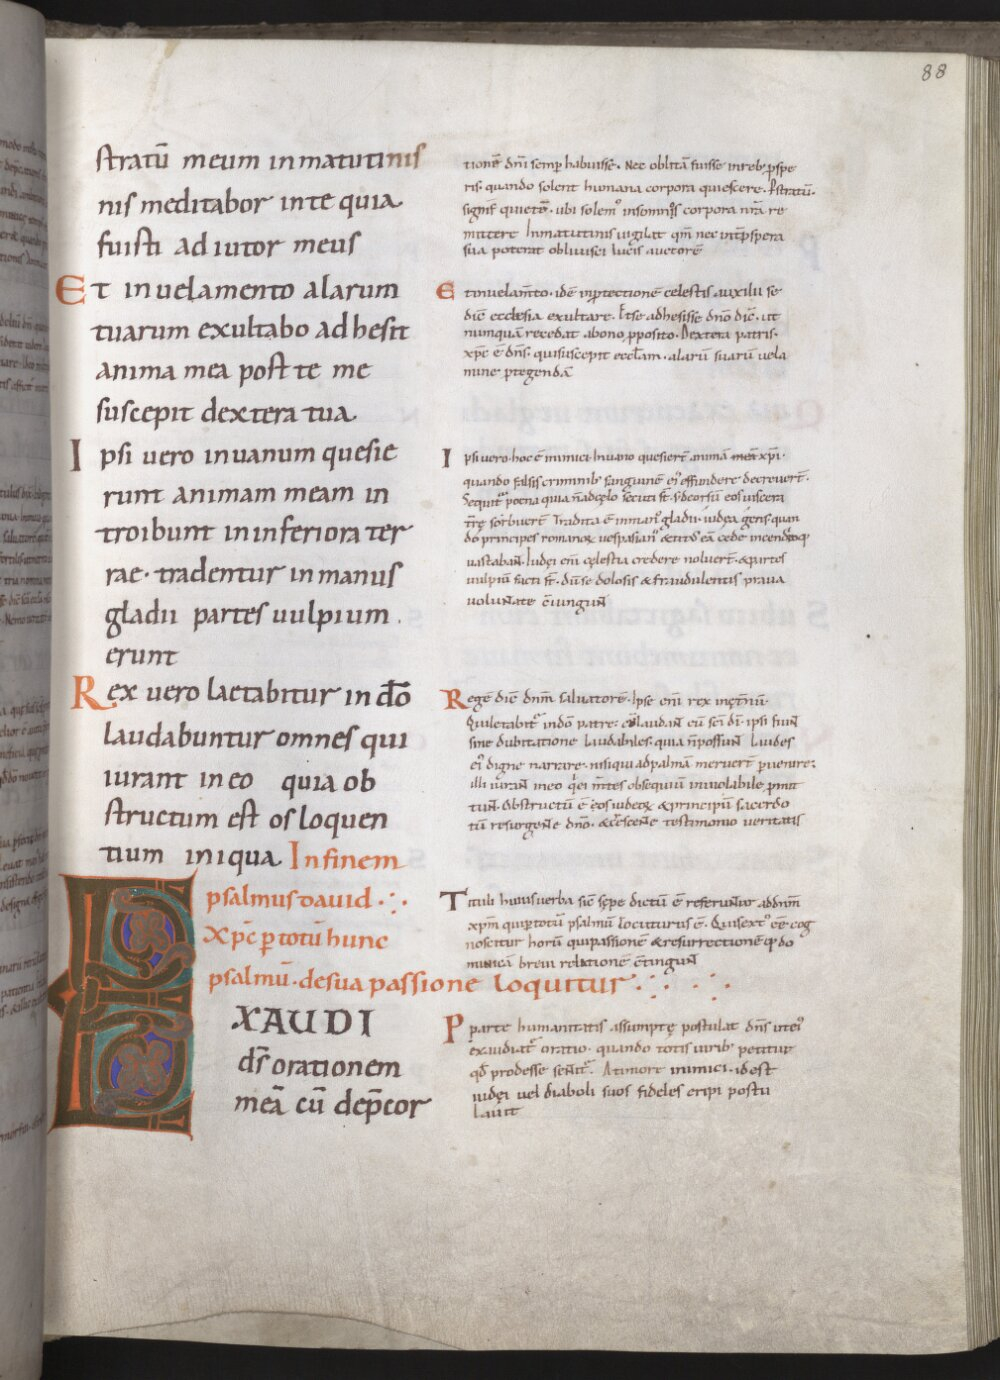 88
stratū meum in matutinis
nis meditabor in te quia
fuisti adiutor meus
Et in uelamento alarum
tuarum exultabo adhesit
anima mea post te me
suscepit dextera tua.
Ipsi uero in uanum quesie
runt animam meam in
troibunt in inferiora ter
rae. tradentur in manus
gladii partes uulpium.
erunt
Rex uero laetabitur in dō
laudabuntur omnes qui
iurant in eo quia ob
structum est os loquen
tium iniqua In finem
psalmus dauid
xp̄c p totū hunc
psalmū. de sua passione loquitur
EXAUDI
ds̄ orationem
meā cū dep̄cor
tionē dn̄i semp habuisse. Nec oblitā fuisse in reb; pspe
ris. quando solent humana corpora quiescere. Pstratū.
signif quietē. ubi solem' insomnis corpora nr̄a re
mittere In matutinis uigilat qm̄ nec in pspera
sua poterat obliuisci lucis auctorē
Et in uelam̄to. idē in ptectionē celestis auxilii se
dic̄ ecclesia exultare. Et se adhesisse dn̄o dic̄. ut
nunquā recedat a bono pposito. Dextera patris.
xp̄c ē dn̄s. qui suscepit eccl̄am. alarū suarū uela
mine ptegendā
Ipsi uero. hoc ē inimici. In uano quesiert̄ animā meā xp̄i.
quando falsis criminib; sanguinē ei' effundere decreuert̄.
Sequit' poena quia n̄ ad cęlo secuti st̄. s; deorsū eos uiscera
tr̄rę sorbuert̄. Tradita ē in man' gladii. iudęa gens quan
do principes romanor uespasian' & tit' eā cede incendioq;
uastabant. Iudęi eni cęlestia credere noluert̄. & partes
uulpiū facti st̄. dū se dolosis & fraudulentis praua
uoluntate ēiungunt
Regē dic̄ dn̄m saluatorē. Ipse eni rex
Qui letabit' in dō patre. laudant cū sc̄i dī. ipsi sunt
sine dubitatione laudabiles. quia n̄ possunt laudes
ei' digne narrare. nisi qui ad palmā meruert̄ puenire;
illi iurant in eo qi ei mentes obsequiū inuiolabile pmit
tunt Obstructū ē os iudeor & principū sacerdo
tū resurgente dn̄o. & crescente testimonio ueritatis
Tituli huius uerba sic̄ sepe dictū ē referuntur ad dn̄m
xp̄m qui p totū psalmū locuturus ē. Qui sext' eē cog
noscitur horū qui passionē & resurrectionē do
minicā breui relatione ētingunt
P parte humanitatis assumptę postulat dn̄s inte'
exaudiat' oratio. quando totis uirib; petitur
qd̄ prodesse sentit'. A timore inimici. id est
iudęi uel diaboli suos fideles eripi postu
lauit